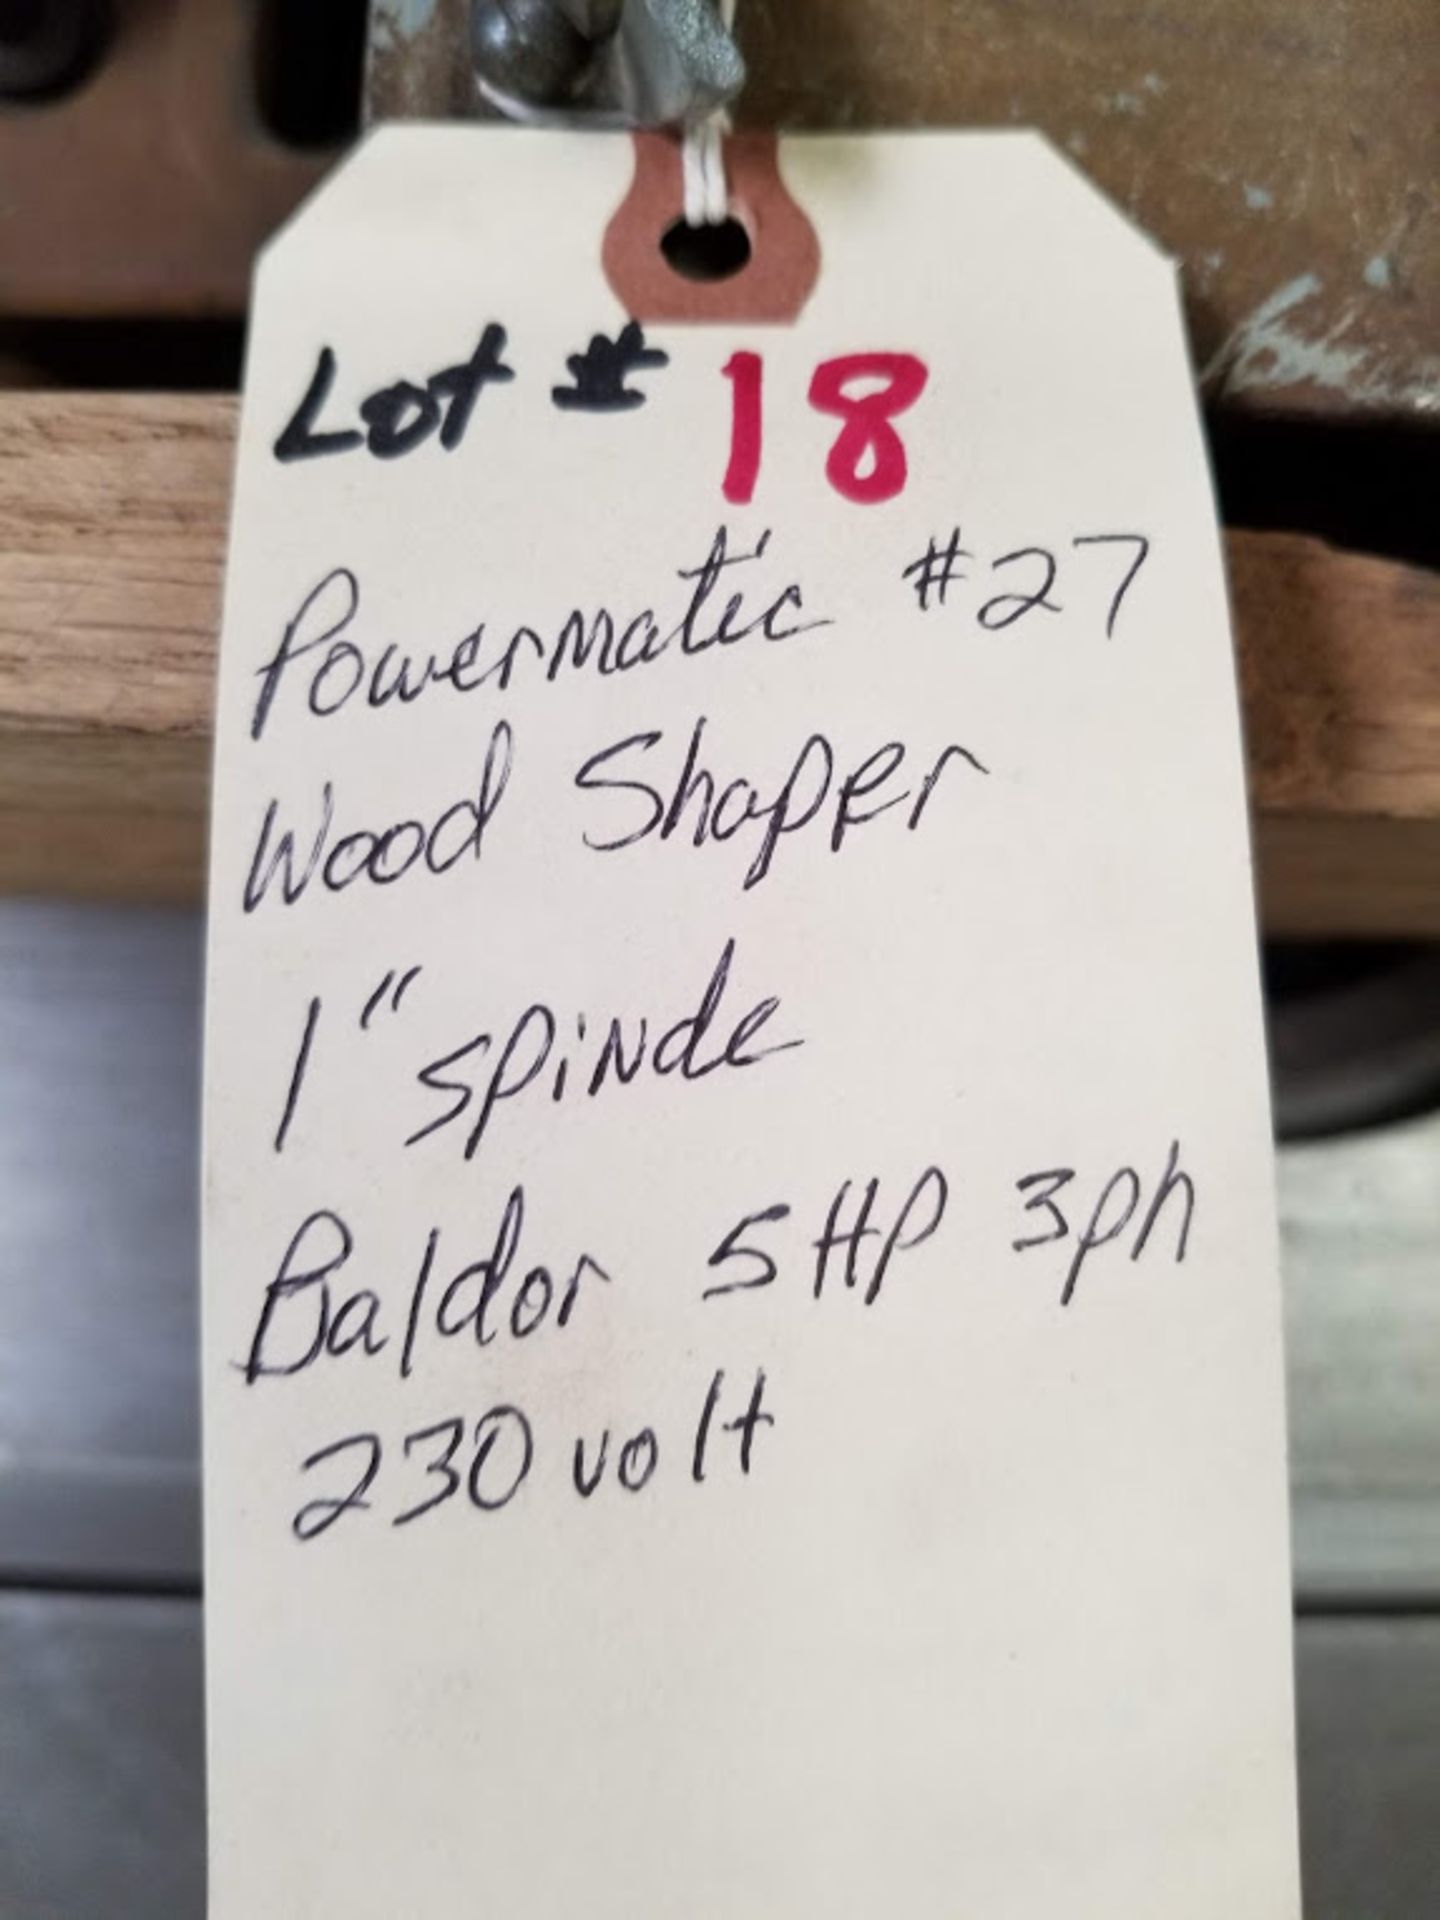 Lot # 18
Powermatic #27
Wood Shaper
1" spindle
Baldor 5HP 3ph
230 volt